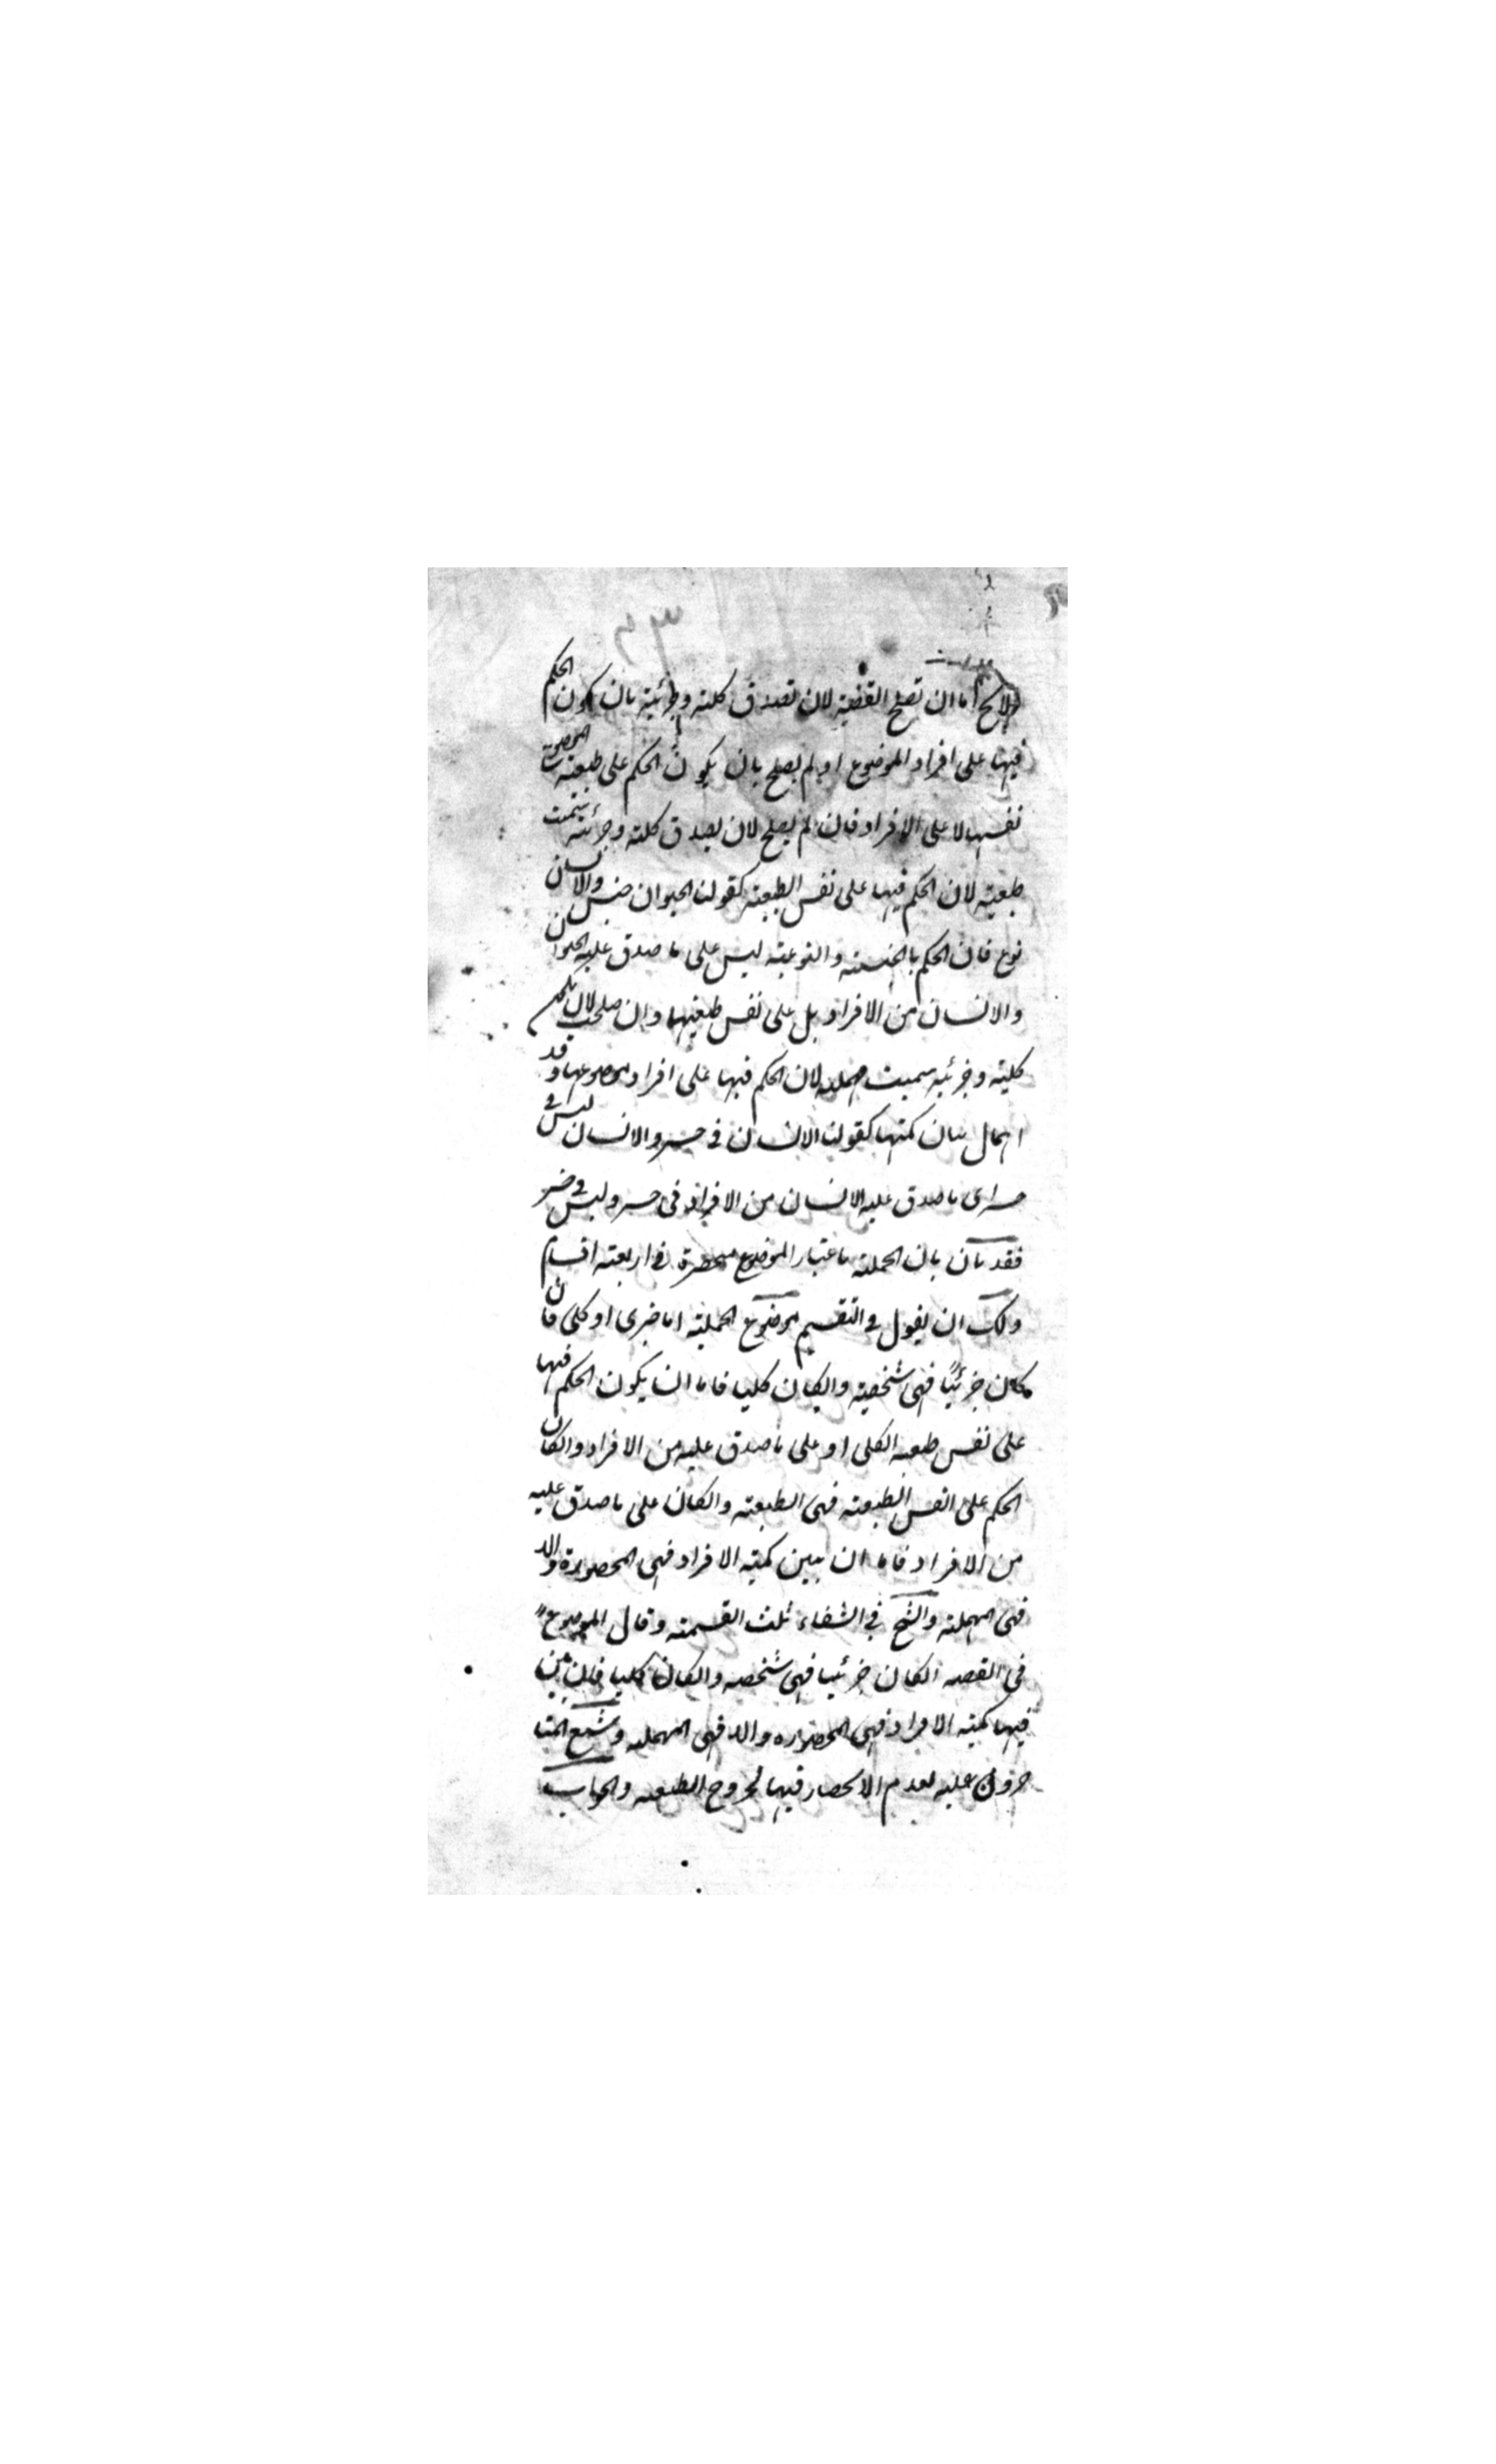 ٣٣
فلا يخ اما ان تصلح القضية لان تصدق كلية وجزئية بان يكون الحكم
فيها على افراد الموضوع او لم يصلح بان يكون الحكم على طبيعة الموضوع
نفسها لا على الافراد فان لم يصلح لان يصدق كلية وجزئية سميت
طبعية لان الحكم فيها على نفس الطبيعة كقولنا الحيوان جنس والانسان
نوع فان الحكم بالجنسية والنوعية ليس على ما صدق عليه الحيوان
والانسان من الافراد بل على نفس طبعيتها وان صلحت لان تكون
كلية وجزئية سميت مهملة لان الحكم فيها على افراد موضوعها وقد
اهمال بيان كميتها كقولنا الانسان في خسر والانسان ليس في
خسر اى ما صدق عليه الانسان من الافراد فى خسر وليس في خسر
فقد بان بان الحملية باعتبار الموضوع منحصرة في اربعة اقسام
ولك ان يقول في التقسيم موضوع الحملية اما جزئ او كلى فان
كان جزئيًا فهى شخصية وانكان كليا فاما ان يكون الحكم فيها
على نفس طبيعة الكلى او على ما صدق عليه من الافراد وانكان
الحكم على انفس الطبيعة فهى الطبيعية وانكان على ما صدق عليه
من الافراد فاما ان يبين كمية الافراد فهى المحصورة والا
فهى المهملة والشيخ في الشفاء ثلث القسمة وقال الموضوع
فى القضية انكان جزئيا فهى شخصية وانكان كليا فان بين
فيها كمية الافراد فهى المحصورة والا فهى المهملة وشنع المتا
خرون عليه لعدم الانحصار فيها لخروج الطبيعية والجواب